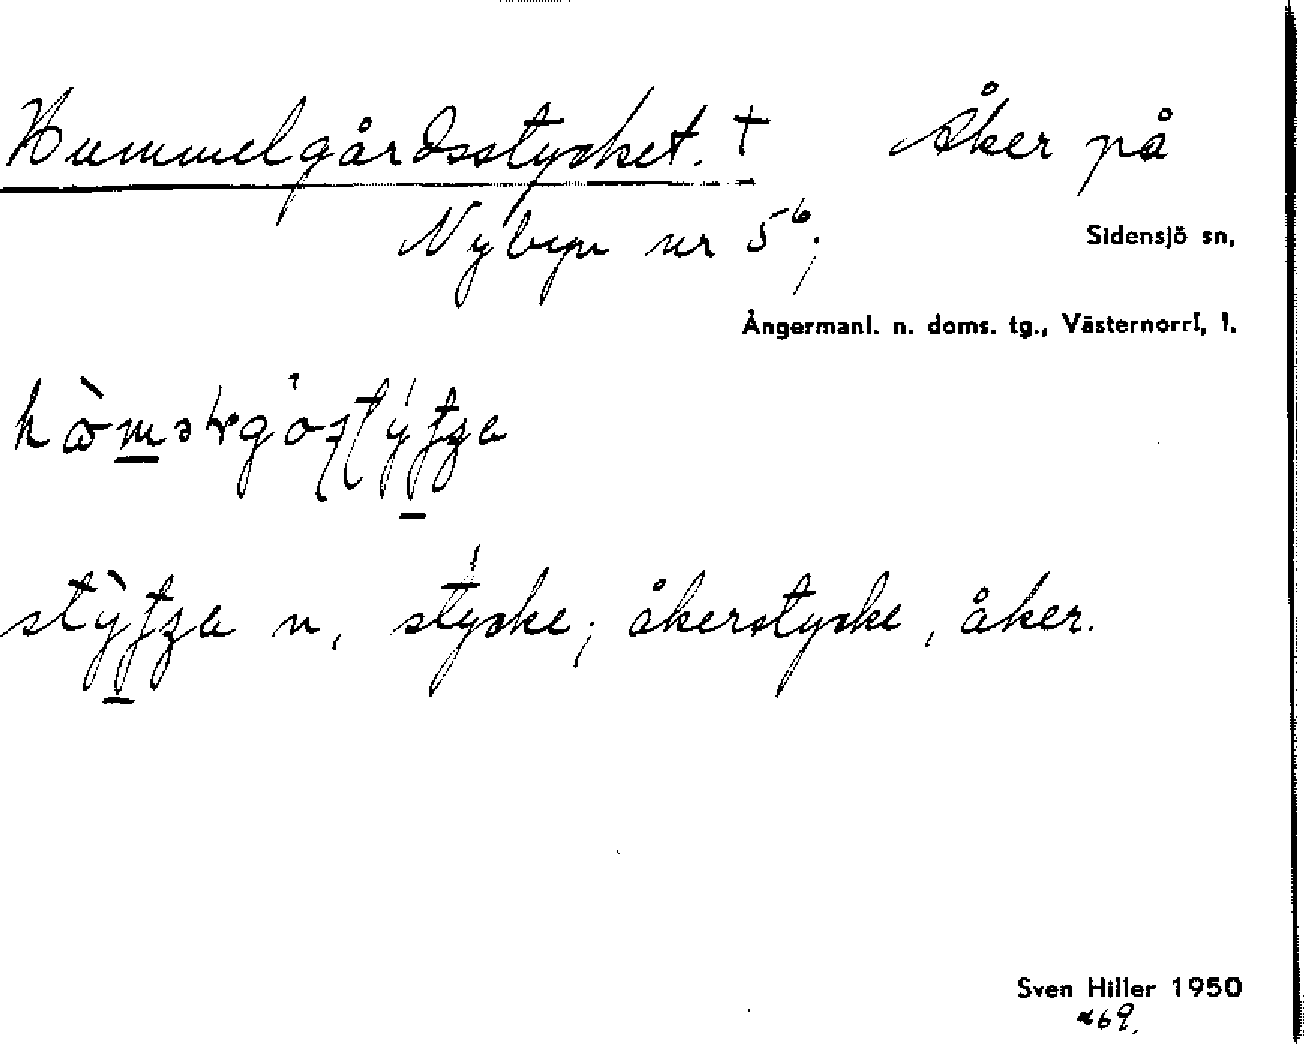 Hummelgårdsstycket. † Åker på
Nybyn nr 5⁶;
Sidensjö sn,
Ångermanl. n. doms. tg., Västernorrl. l.
stycke; åkerstycke, åker.
Sven Hiller 1950